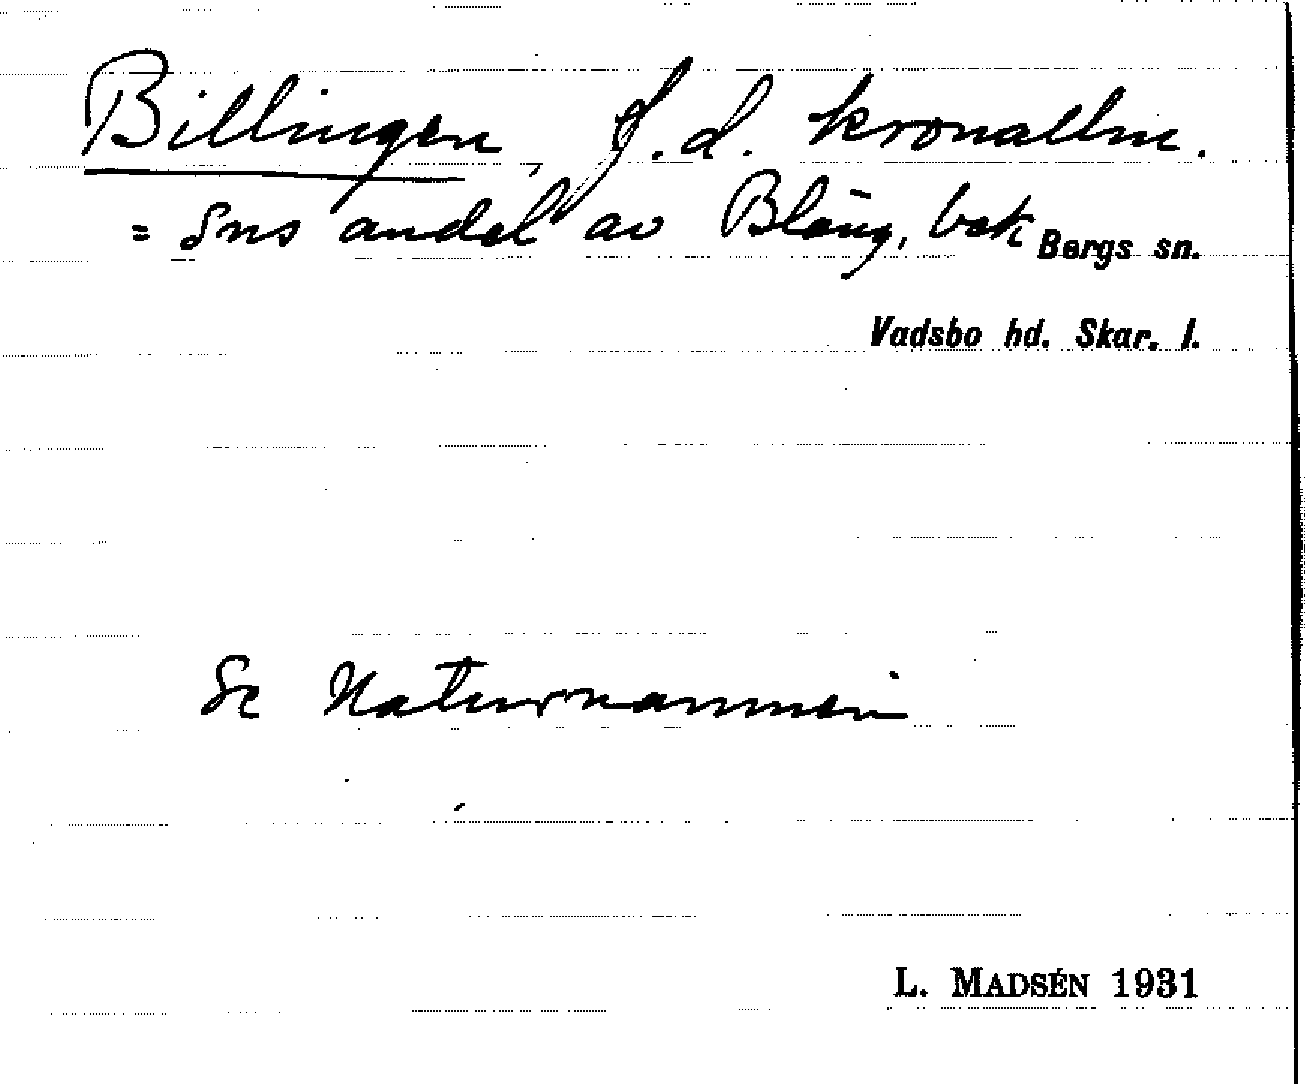 Billingen, f. d. kronallm.
= Sns andel av Bläng, bet.
Bergs sn.
Vadsbo hd. Skar. l.
Se Naturnamnen
L. MADSÉN 1931